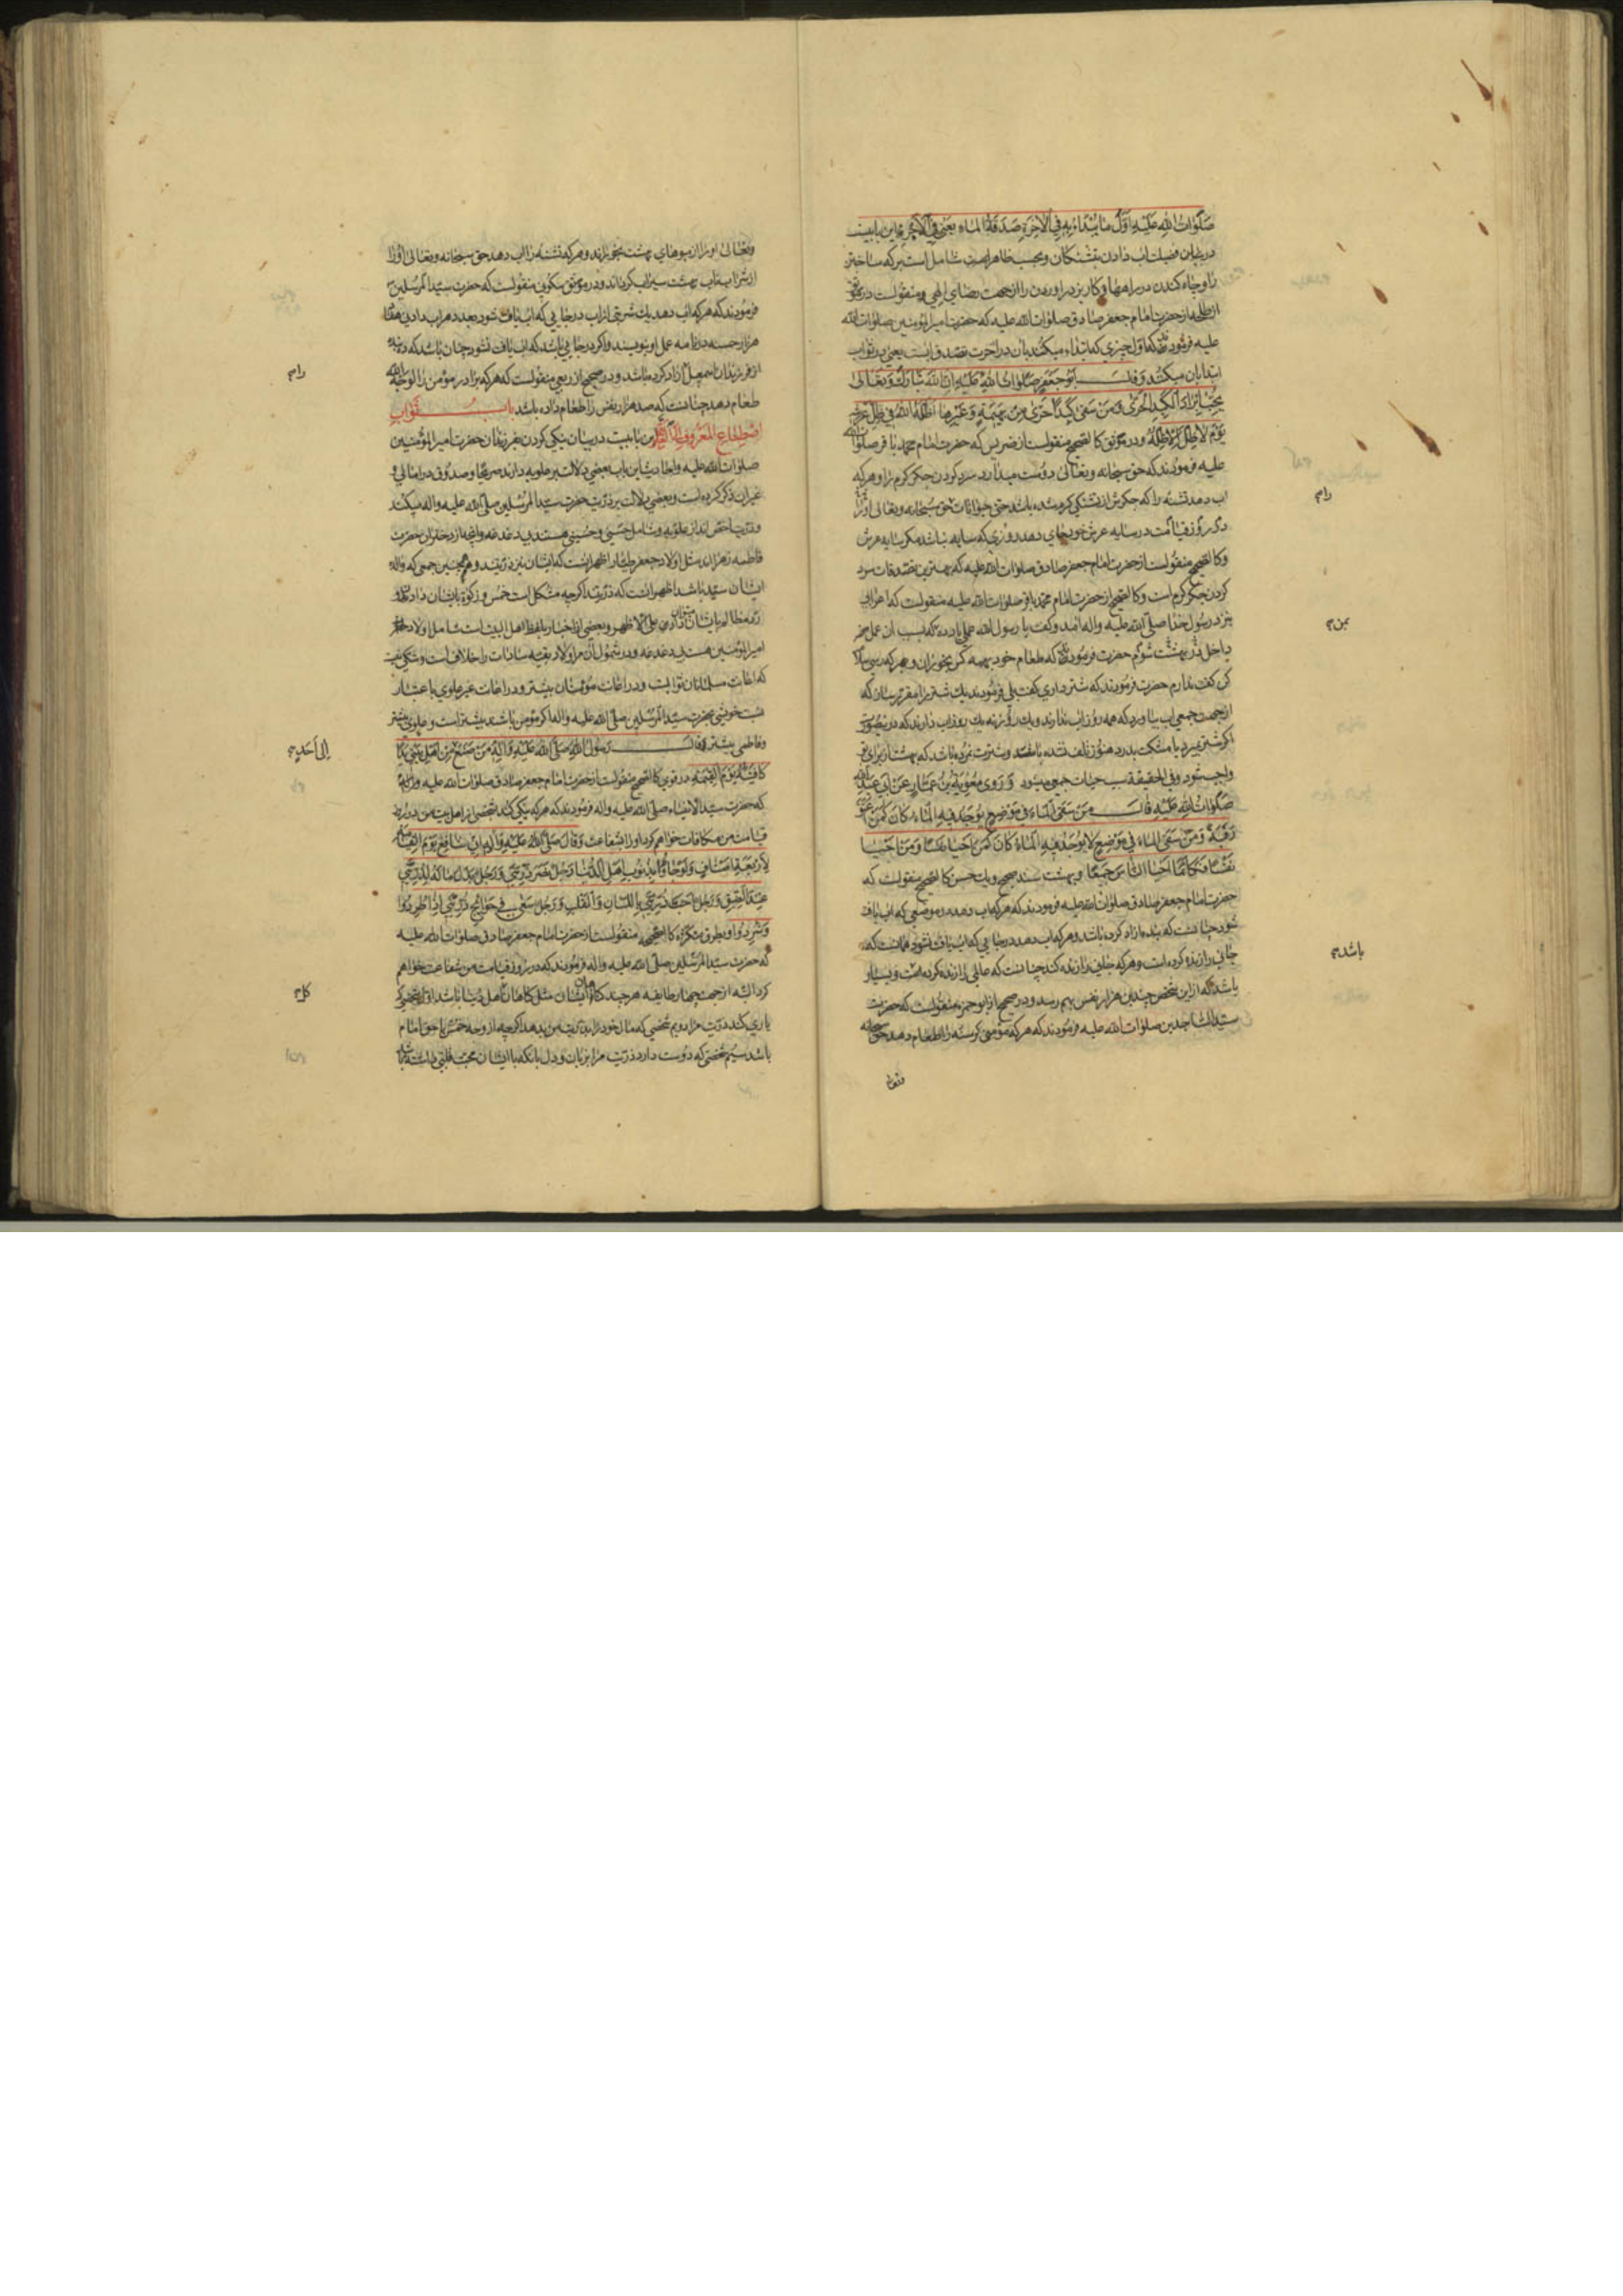 صَلَوٰاتُ اللهِ عَلَيْهِ اَوَّلُ مٰا يُبْدَاءُ بِهِ فِي الْاٰخِرَةِ صَدَقَةُ الْمٰاءِ يَعْنِي فِي الْاَجْرِ اين بابيست
در بيان فضيلت اب دادن بتشنكان وبحسب ظاهر شامل است بركه ساختن
را وچاه كندن در راهها وكاريز دراوردن را از جهت رضاي الهي ومنقولست در موثق
از طلحه از حضرت امام جعفر صادق صلوات الله عليه كه حضرت امير المؤمنين صلوات الله
عليه فرمودند كه اول چيزي كه ابتداء ميكنند بان در اخرت تصدق ابست يعني در ثواب
ابتدا بان ميكنند وَقٰالَ اَبُو جَعْفَرٍ صَلَوٰاتُ اللهِ عَلَيْهِ اِنَّ اللهَ تَبٰارَكَ وَتَعٰالىٰ
يُحِبُّ اِبْرٰادَ الْكَبِدِ الْحَرّىٰ وَمَنْ سَقىٰ كَبِدًا حَرّىٰ مِنْ بَهِيمَةٍ وَغَيْرِهٰا اَظَلَّهُ اللهُ فِي ظِلِّ عَرْشِهِ
يَوْمَ لاٰ ظِلَّ اِلاّٰ ظِلُّهُ ودر موثق كالصحيح منقولست از ضريس كه حضرت امام محمد باقر صلوات الله
عليه فرمودند كه حق سبحانه وتعالى دوست ميدارد سرد كردن جكر كرم را وهر كه
اب دهد تشنه را كه جكرش از تشنكي كرم شده باشد حتى حيوانات حق سبحانه وتعالى او را
در روز قيامت در سايه عرش خود جاي دهد روزي كه سايه نباشد مكر سايه عرش
وكالصحيح منقولست از حضرت امام جعفر صادق صلوات الله عليه كه بهترين تصدقات سرد
كردن جكر كرم است وكالصحيح از حضرت امام محمد باقر صلوات الله عليه منقولست كه اعرابي
بنزد رسول خدا صلى الله عليه واله امد وكفت يا رسول الله عملي ياد ده كه بسبب ان عمل
داخل بهشت شوم حضرت فرمودند كه طعام خود بهمه كس بخوران وبهر كه رسي سلام
كن كفت ندارم حضرت فرمودند كه شتر داري كفت بلي فرمودند يك شتر را مقرر ساز كه
از جهت جمعي اب بياورد كه همه روز اب ندارند ويك روز نه يك روز اب دارند كه
اكر شتر بميرد يا مشكت بدرد هنوز تلف نشده باشد وشترت نمرده باشد كه بهشت از براي تو
واجب شود وفي الحقيقه سبب حيات جمعي ميشود وَرَوىٰ مُعٰوِيَةُ بْنُ عَمّٰارٍ عَنْ اَبِي عَبْدِ اللهِ
صَلَوٰاتُ اللهِ عَلَيْهِ قٰالَ مَنْ سَقَى الْمٰاءَ فِي مَوْضِعٍ يُوجَدُ فِيهِ الْمٰاءُ كٰانَ كَمَنْ اَعْتَقَ
رَقَبَةً وَمَنْ سَقَى الْمٰاءَ فِي مَوْضِعٍ لاٰ يُوجَدُ فِيهِ الْمٰاءُ كٰانَ كَمَنْ اَحْيٰا نَفْسًا وَمَنْ اَحْيٰا
نَفْسًا فَكَاَنَّمٰا اَحْيَا النّٰاسَ جَمِيعًا وبهشت سند صحيح ويك حسن كالصحيح منقولست كه
حضرت امام جعفر صادق صلوات الله عليه فرمودند كه هر كه اب دهد در موضعي كه اب يافت
شود چنانست كه بنده ازاد كرده باشد وهر كه اب دهد در جايي كه اب يافت نشود چنانست كه
جاني را زنده كرده است وهر كه جاني را زنده كند چنانست كه عالمي را زنده كرده است وبسيار
باشد كه از اين شخص چندين هزار نفس بهم رسد ودر صحيح از ابو حمزه منقولست كه حضرت
سيد الساجدين صلوات الله عليه فرمودند كه هر كه مؤمني كرسنه را طعام دهد حق سبحانه
وتعا
رام
بمن م
باشد م
وتعالى او را از ميوهاي بهشت بخوراند وهر كه تشنه را اب دهد حق سبحانه وتعالى او را
از شراب ناب بهشت سيراب كرداند ودر موثق سكوني منقولست كه حضرت سيد المرسلين
فرمودند كه هر كه اب دهد يك شربتي از اب در جايي كه اب يافت شود بعدد هر اب دادني هفتاد
هزار حسنه در نامه عمل او نويسند واكر در جايي باشد كه اب يافت نشود چنان باشد كه ده بنده
از فرزندان اسمعيل ازاد كرده باشد ودر صحيح از ربعي منقولست كه هر كه برادر مؤمن را لوجه الله
طعام دهد چنانست كه صد هزار نفس را طعام داده باشد بابُ ثَوٰابِ
اصْطِنٰاعِ الْمَعْرُوفِ اِلَى الْعَلَوِيَّةِ اين بابيست در بيان نيكي كردن بفرزندان حضرت امير المؤمنين
صلوات الله عليه واحاديث اين باب بعضي دلالت بر علويه دارند صريحا وصدوق در امالي و
غير ان ذكر كرده است وبعضي دلالت بر ذريت حضرت سيد المرسلين صلى الله عليه واله ميكند
وذريت اخص اند از علويه وشامل حسني وحسيني هستند بي دغدغه وانچه از دختران حضرت
فاطمه زهرا اند مثل اولاد جعفر طيار اظهر انست كه ايشان نيز ذريتند وهمچنين جمعي كه والده
ايشان سيده باشد اظهر انست كه ذريتند اكرچه مشكل است خمس وزكوة بايشان دادن و
رد مظالم بايشان ميتوان داد على الاظهر وبعضي از اخبار بلفظ اهل البيت است شامل اولاد
امير المؤمنين هست بي دغدغه ودر شمول ان مر اولاد بقيه سادات را خلاف است وشكي نيست
كه اعانت مسلمانان ثوابست ودر اعانت مؤمنان بيشتر ودر اعانت غير علوي باعتبار
نسبت خويشي بحضرت سيد المرسلين صلى الله عليه واله اكر مؤمن باشند بيشتر است وعلوي بيشتر
وفاطمي بيشتر وَقٰالَ رَسُولُ اللهِ صَلَّى اللهُ عَلَيْهِ وَاٰلِهِ مَنْ صَنَعَ مِنْ اَهْلِ بَيْتِي يَدًا
كٰافَيْتُهُ يَوْمَ الْقِيٰمَةِ در قوي كالصحيح منقولست از حضرت امام جعفر صادق صلوات الله عليه
كه حضرت سيد الانبياء صلى الله عليه واله فرمودند كه هر كه نيكي كند بشخصي از اهل بيت من در روز
قيامت من مكافات خواهم كرد او را بشفاعت وَقٰالَ صَلَّى اللهُ عَلَيْهِ وَاٰلِهِ اِنّي شٰافِعٌ يَوْمَ الْقِيٰمَةِ
لِاَرْبَعَةِ اَصْنٰافٍ وَلَوْ جٰاؤُا بِذُنُوبِ اَهْلِ الدُّنْيٰا رَجُلٌ نَصَرَ ذُرِّيَّتِي وَرَجُلٌ بَذَلَ مٰالَهُ لِذُرِّيَّتِي
عِنْدَ الضّيقِ وَرَجُلٌ اَحَبَّ ذُرِّيَّتِي بِاللِّسٰانِ وَالْقَلْبِ وَرَجُلٌ سَعىٰ فِي حَوٰائِجِ ذُرِّيَّتِي اِذٰا طُرِدُوا
وَشُرِّدُوا وبطرق متكثره كالصحيح منقولست از حضرت امام جعفر صادق صلوات الله عليه
كه حضرت سيد المرسلين صلى الله عليه واله فرمودند كه در روز قيامت من شفاعت خواهم
كرد البته از جهت چهار طايفه هر چند كناهان ايشان مثل كناهان اهل دنيا باشد اول شخصي كه
ياري كند ذريت مرا دويم شخصي كه مال خود را بذريت من بدهد اكرچه از وجه خمس يا حق امام
باشد سيم شخصي كه دوست دارد ذريت مرا بزبان ودل بانكه با ايشان محبت قلبي داشته باشد
رام
اِلىٰ اَحَدٍ م
كل م